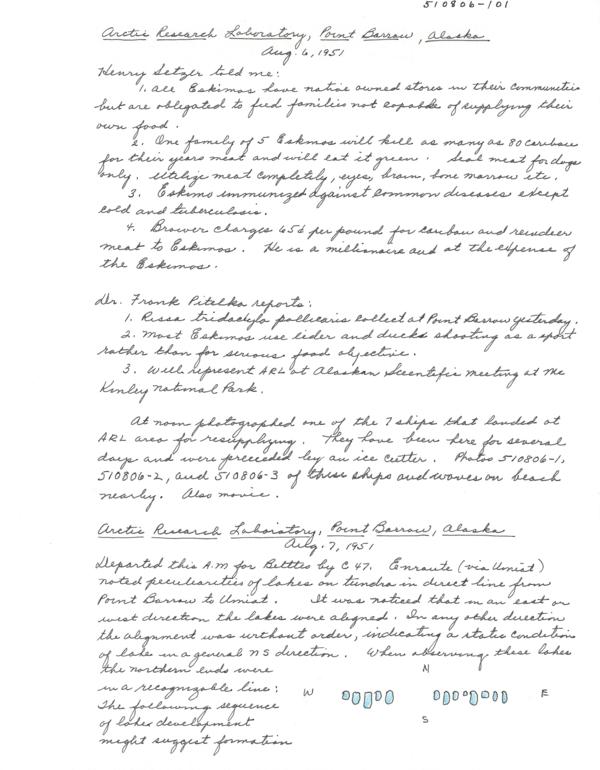 510806-101
Arctic Research Laboratory, Point Barrow, Alaska
Aug. 6, 1951
Henry Setzer told me:
1. All Eskimos have native owned stores in their communities
but are obligated to feed families not capable of supplying their
own food.
2. One family of 5 Eskimos will kill as many as 80 caribou
for their years meat and will eat it green. Seal meat for dogs
only. Utilize meat completely, eyes, brain, bone marrow etc.
3. Eskimo immunized against common diseases except
cold and tuberculosis.
4. Brower charges 65¢ per pound for caribou and reindeer
meat to Eskimos. He is a millionaire and at the expense of
the Eskimos.
Dr. Frank Pitelka reports:
1. Rissa tridactyla pollicaris collect at Point Barrow yesterday.
2. Most Eskimos use eider and ducks shooting as a sport
rather than for serious food objective.
3. Will represent ARL at Alaskan Scientific meeting at Mc
Kinley National Park.
At noon photographed one of the 7 ships that landed at
ARL area for resupplying. They have been here for several
days and were preceeded by an ice cutter. Photos 510806-1,
510806-2, and 510806-3 of these ships and waves on beach
nearby. Also movie.
Arctic Research Laboratory, Point Barrow, Alaska
Aug. 7, 1951
Departed this A.M for Bettles by C 47. Enroute (via Umiat)
noted peculiarities of lakes on tundra in direct line from
Point Barrow to Umiat. It was noticed that in an east or
west direction the lakes were aligned. In any other direction
the alignment was without order, indicating a static condition
of lake in a general NS direction. When observing these lakes
the northern ends were
in a recognizable line:
The following sequence
of lakes development
might suggest formation
N
W
E
S